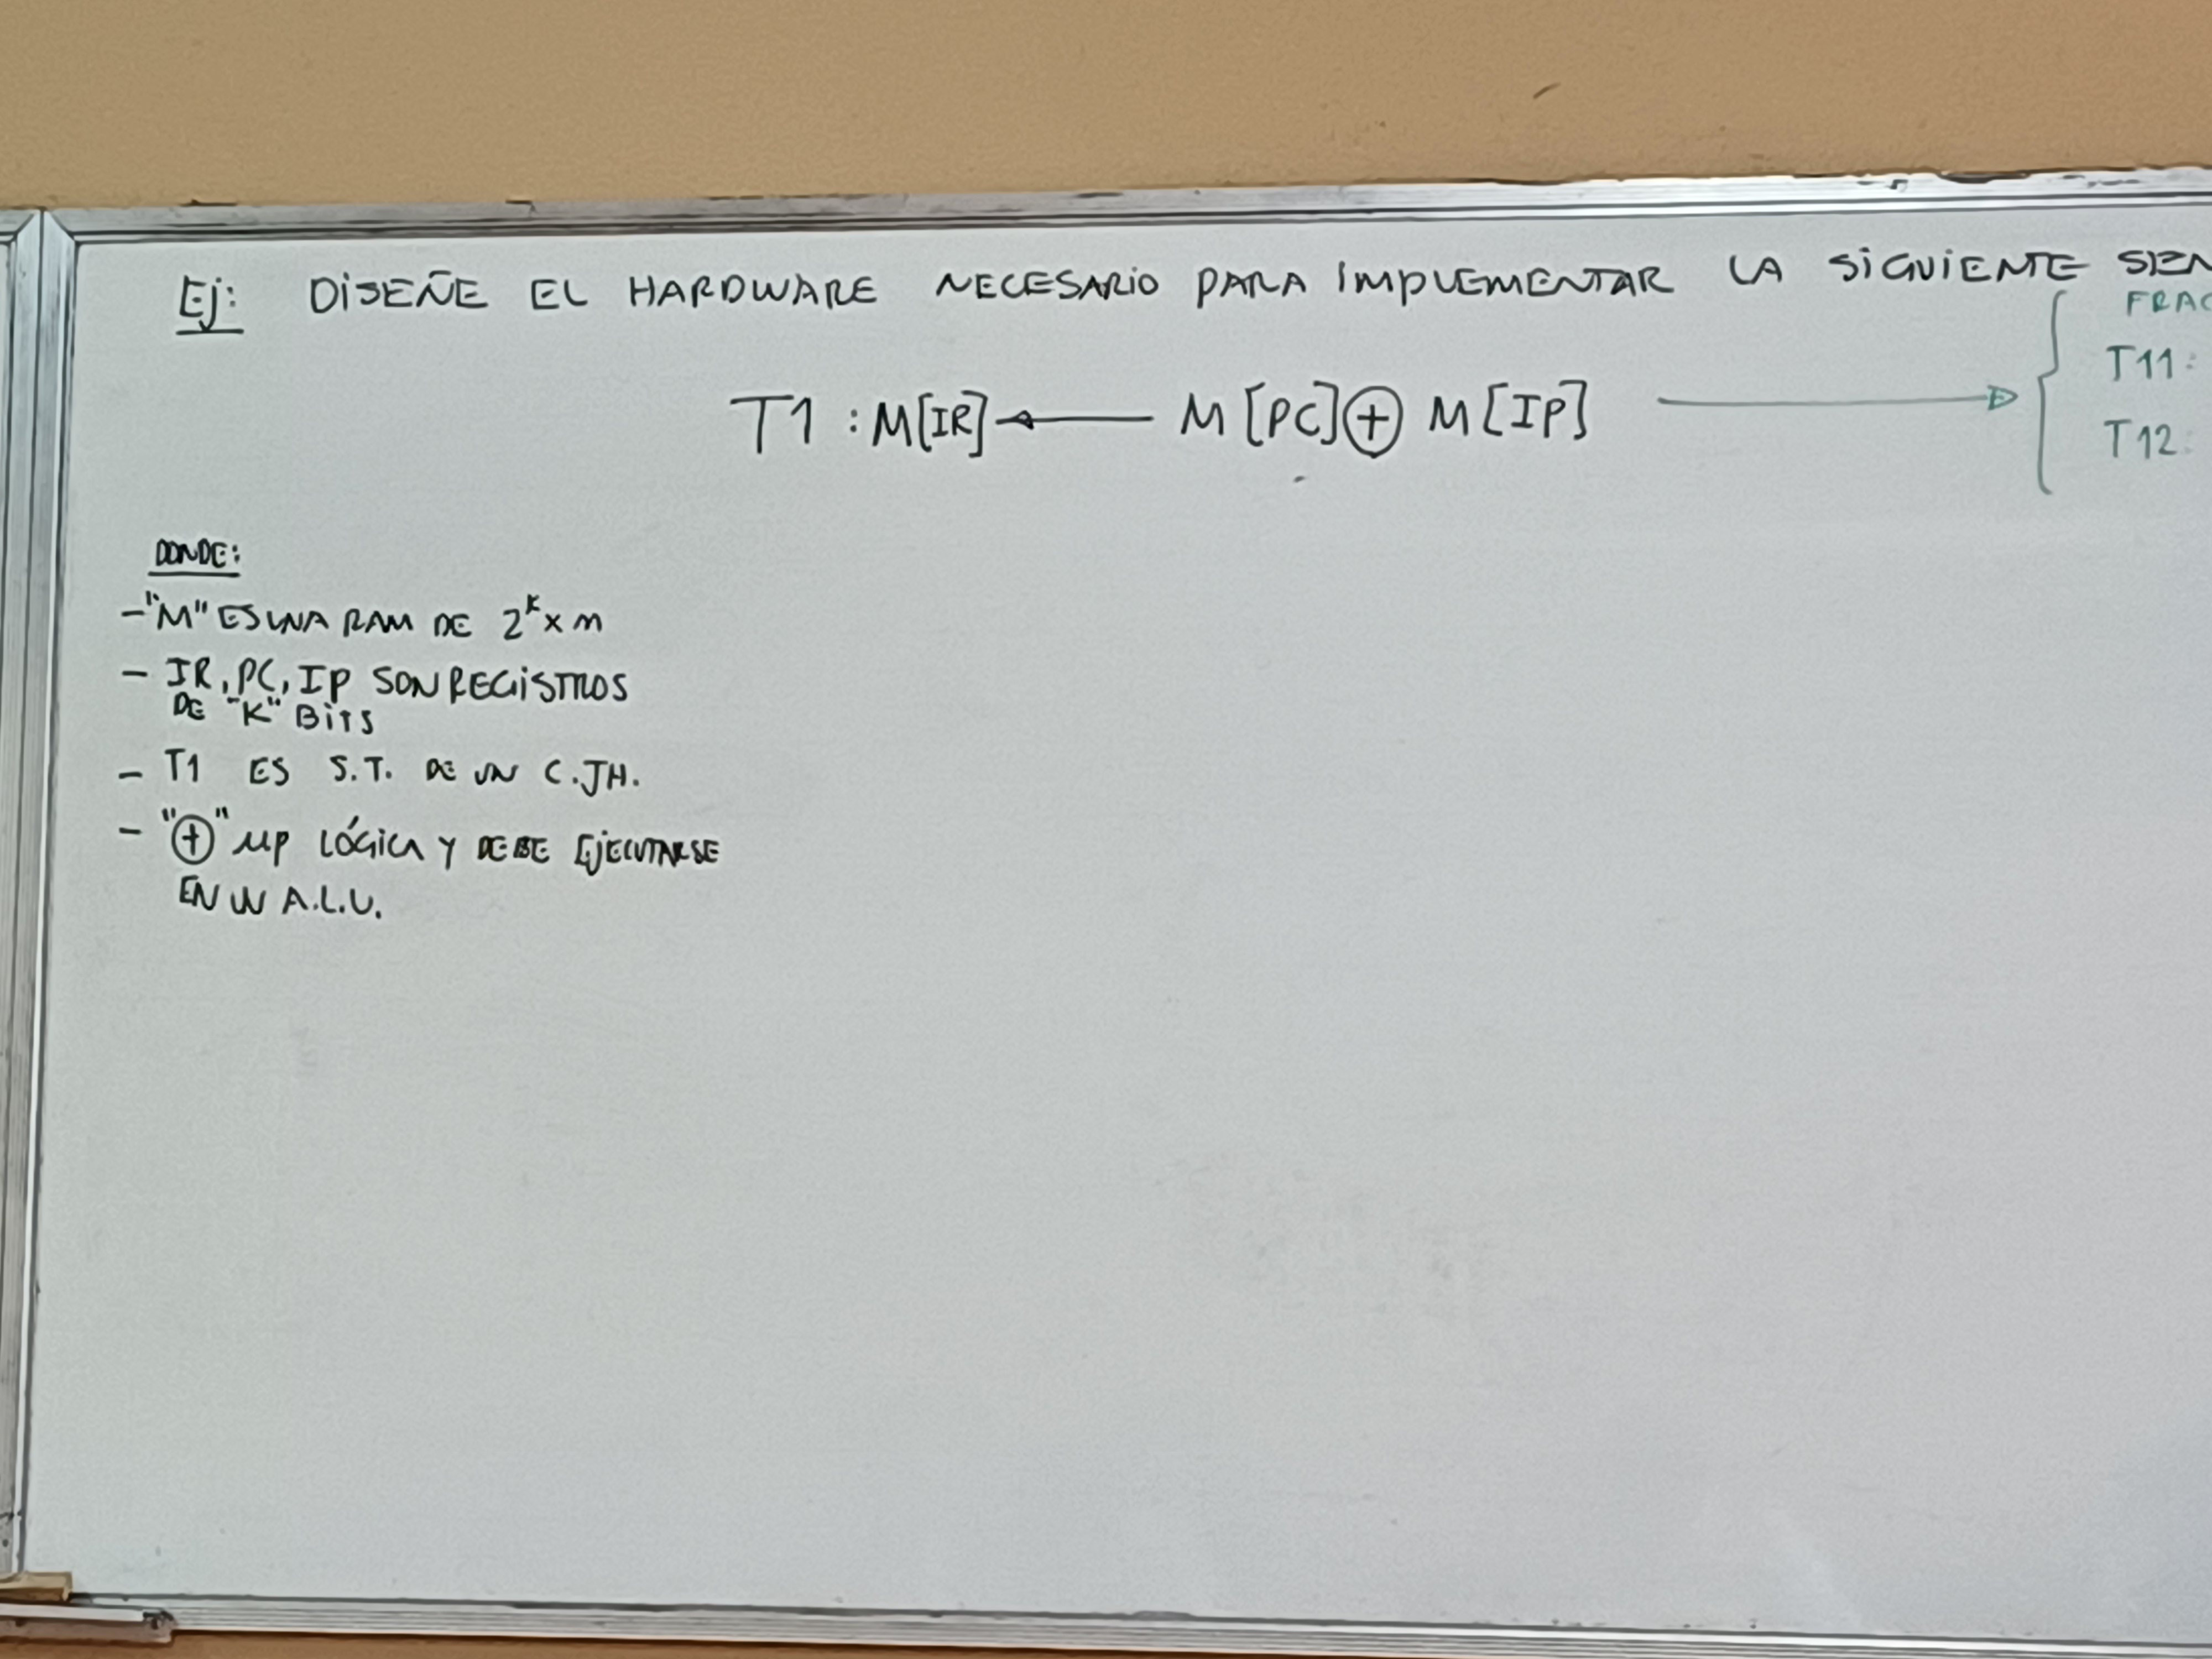 Ej: DISEÑE EL HARDWARE NECESARIO PARA IMPLEMENTAR LA SIGUIENTE
FRAC
T1 : M[IR] ← M[PC] ⊕ M[IP] →
T11:
T12:
DONDE:
- "M" ES UNA RAM DE 2^K x m
- IR, PC, IP SON REGISTROS
DE "K" BITS
- T1 ES S.T. DE UN C.JH.
- "⊕" µP LÓGICA Y DEBE EJECUTARSE
EN UN A.L.U.